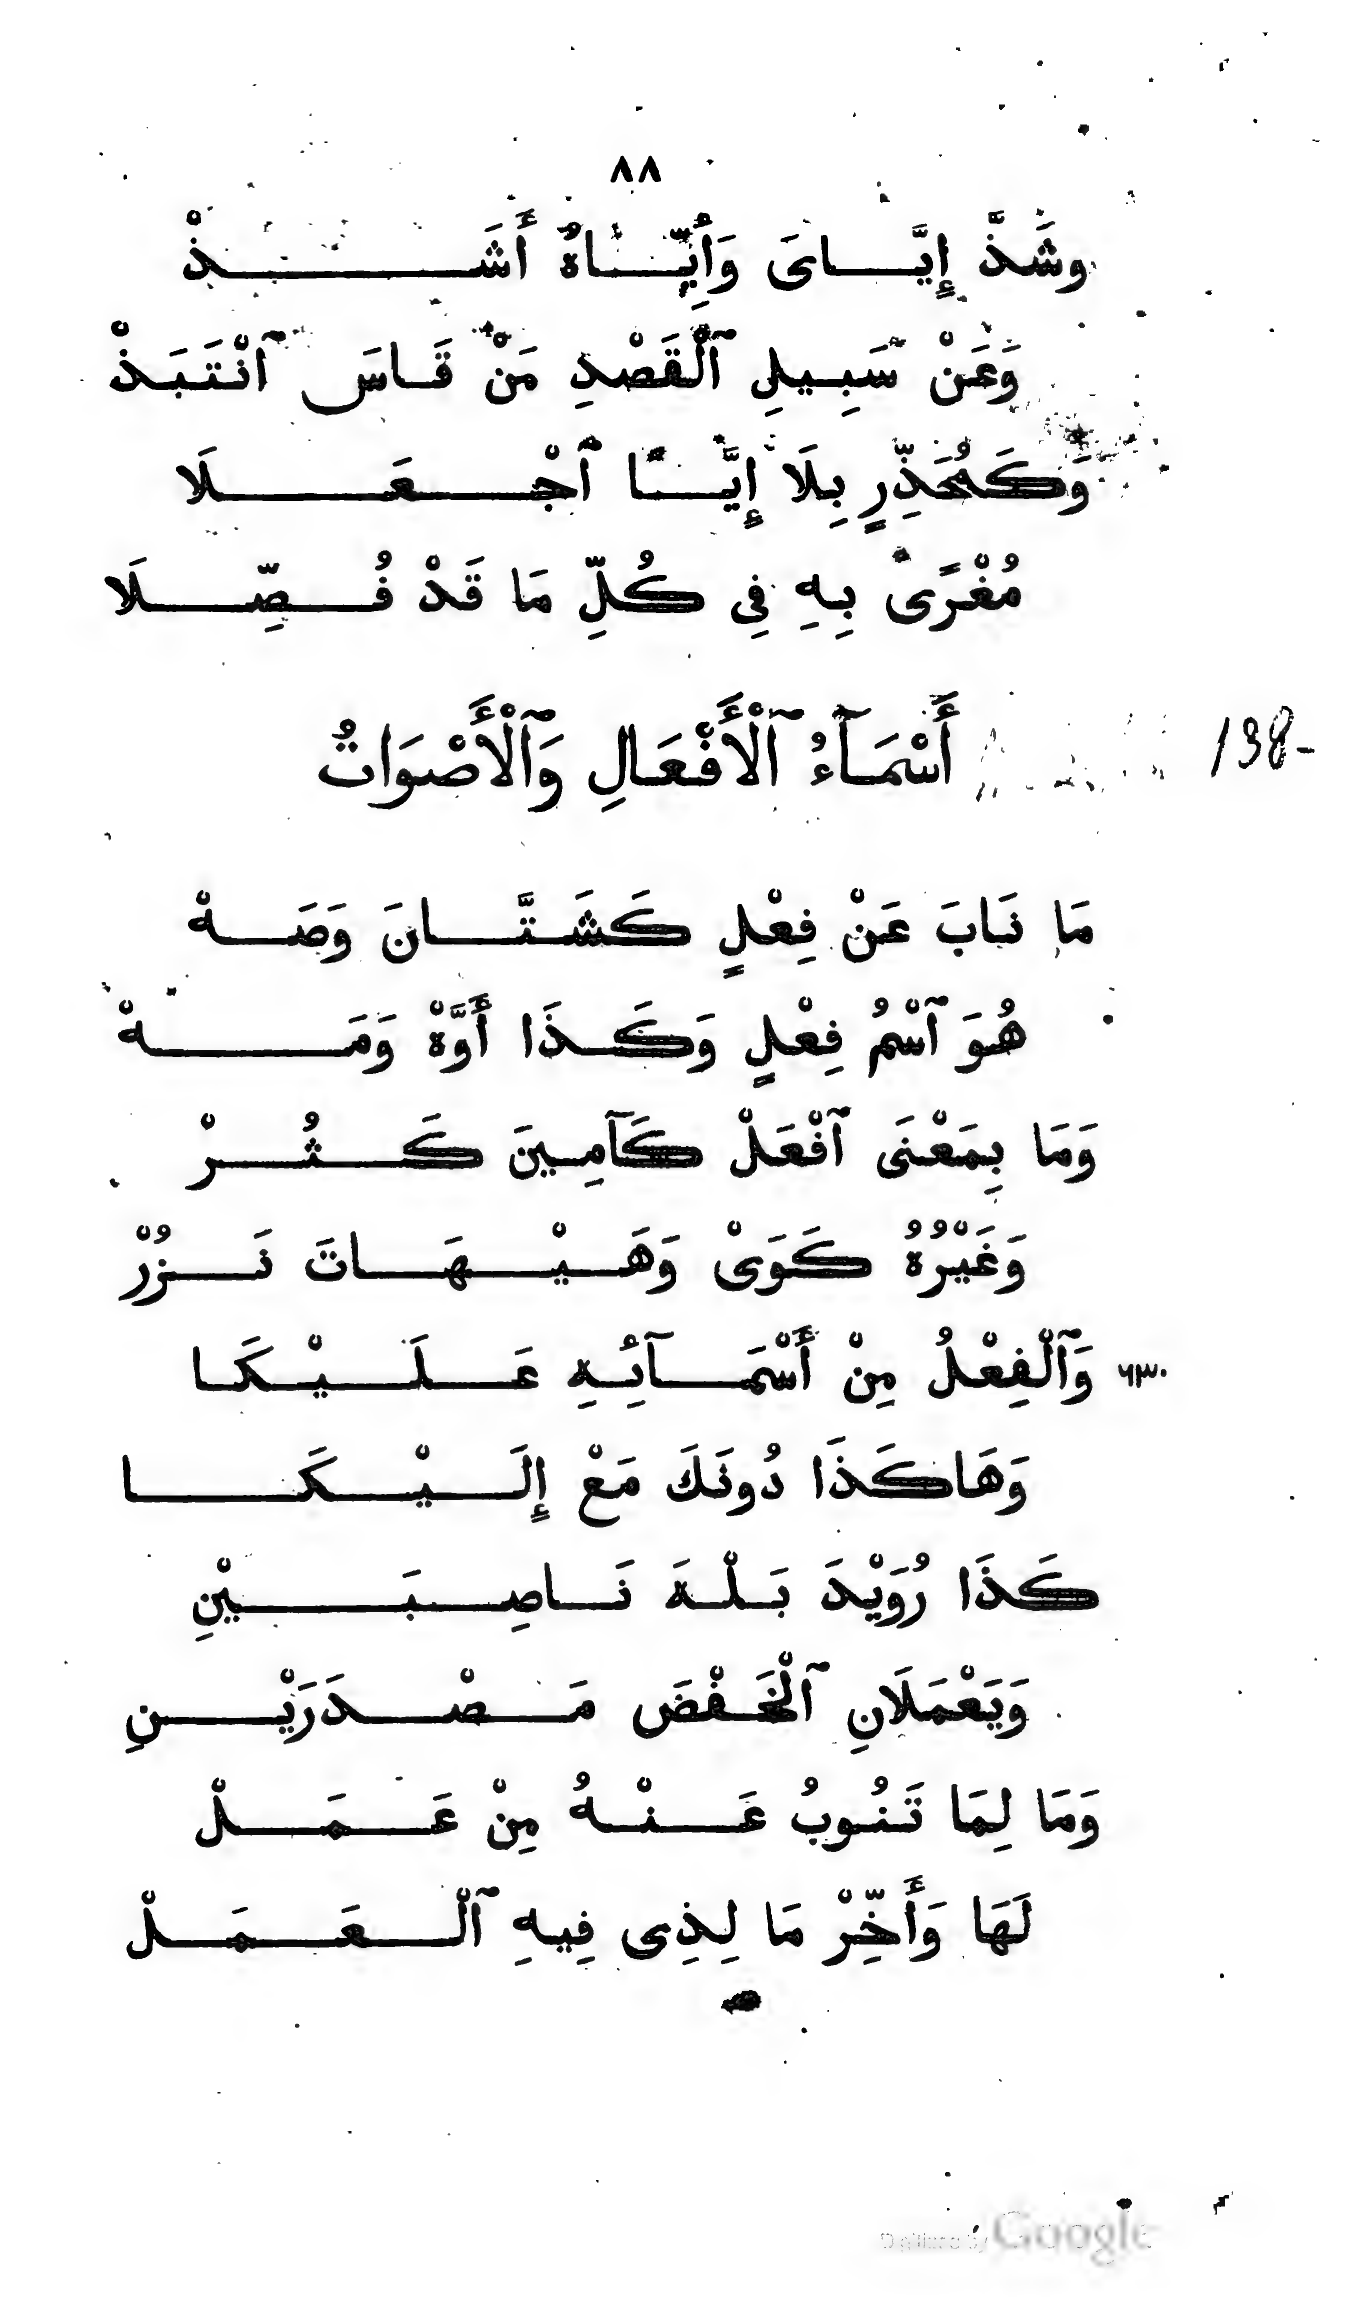 ٨٨
وشَذَّ إِيَّاىَ وَأَِيَّاهُ أَشَذْ
وَعَنْ سَبِيلِ ٱلْقَصْدِ مَنْ قَاسَ ٱنْتَبَذْ
وَكَمُحَذِّرٍ بِلَا إِيَّا ٱجْعَلَا
مُغْرًى بِهِ فِى كُلِّ مَا قَدْ فُصِّلَا
أَسْمَآءُ ٱلْأَفْعَالِ وَٱلْأَصْوَاتُ
138-
مَا نَابَ عَنْ فِعْلٍ كَشَتَّانَ وَصَهْ
هُوَ ٱسْمُ فِعْلٍ وَكَذَا أَوَّهْ وَمَهْ
وَمَا بِمَعْنَى ٱفْعَلْ كَآمِينَ كَثُرْ
وَغَيْرُهُ كَوَىْ وَهَيْهَاتَ نَزُرْ
٦٣٠ وَٱلْفِعْلُ مِنْ أَسْمَآئِهِ عَلَيْكَا
وَهَاكَذَا دُونَكَ مَعْ إِلَيْكَا
كَذَا رُوَيْدَ بَلْهَ نَاصِبَيْنِ
وَيَعْمَلَانِ ٱلْخَفْضَ مَصْدَرَيْنِ
وَمَا لِمَا تَنُوبُ عَنْهُ مِنْ عَمَلْ
لَهَا وَأَخِّرْ مَا لِذِى فِيهِ ٱلْعَمَلْ
Digitized by Google